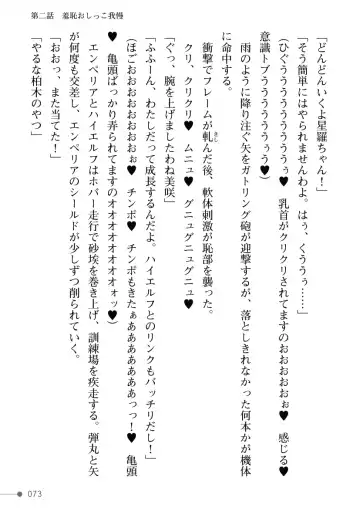 第二話　羞恥おしっこ我慢
「どんどんいくよ星羅ちゃん！」
「そう簡単にはやられませんわよ。はぅ、くううぅ……」
（ひぐううううううううぅぅ♥　乳首がクリクリされてますのおおおおおぉ♥　感じる♥
意識トブうううううううぅぅう♥）
雨のように降り注ぐ矢をガトリング砲が迎撃するが、落としきれなかった何本かが機体
に命中する。
クリ、クリクリ♥　ムニュ♥　グニュグニュグニュ♥
衝撃でフレームが軋んだ後、軟体刺激が恥部を襲った。
「ぐっ、腕を上げましたわね美咲」
「ふふーん、わたしだって成長するんだよ。ハイエルフとのリンクもバッチリだし！」
（ほごおおおおおおおおぉ♥　チンポ♥　チンポもきたぁあああああああっっ！　亀頭
♥　亀頭ばっかり弄られてますのオオオオオオォォッ♥）
エンペリアとハイエルフはホバー走行で砂埃を巻き上げ、訓練場を疾走する。弾丸と矢
が何度も交差し、エンペリアのシールドが少しずつ削られていく。
「おおっ、また当てた！」
「やるな柏木のやつ」
073